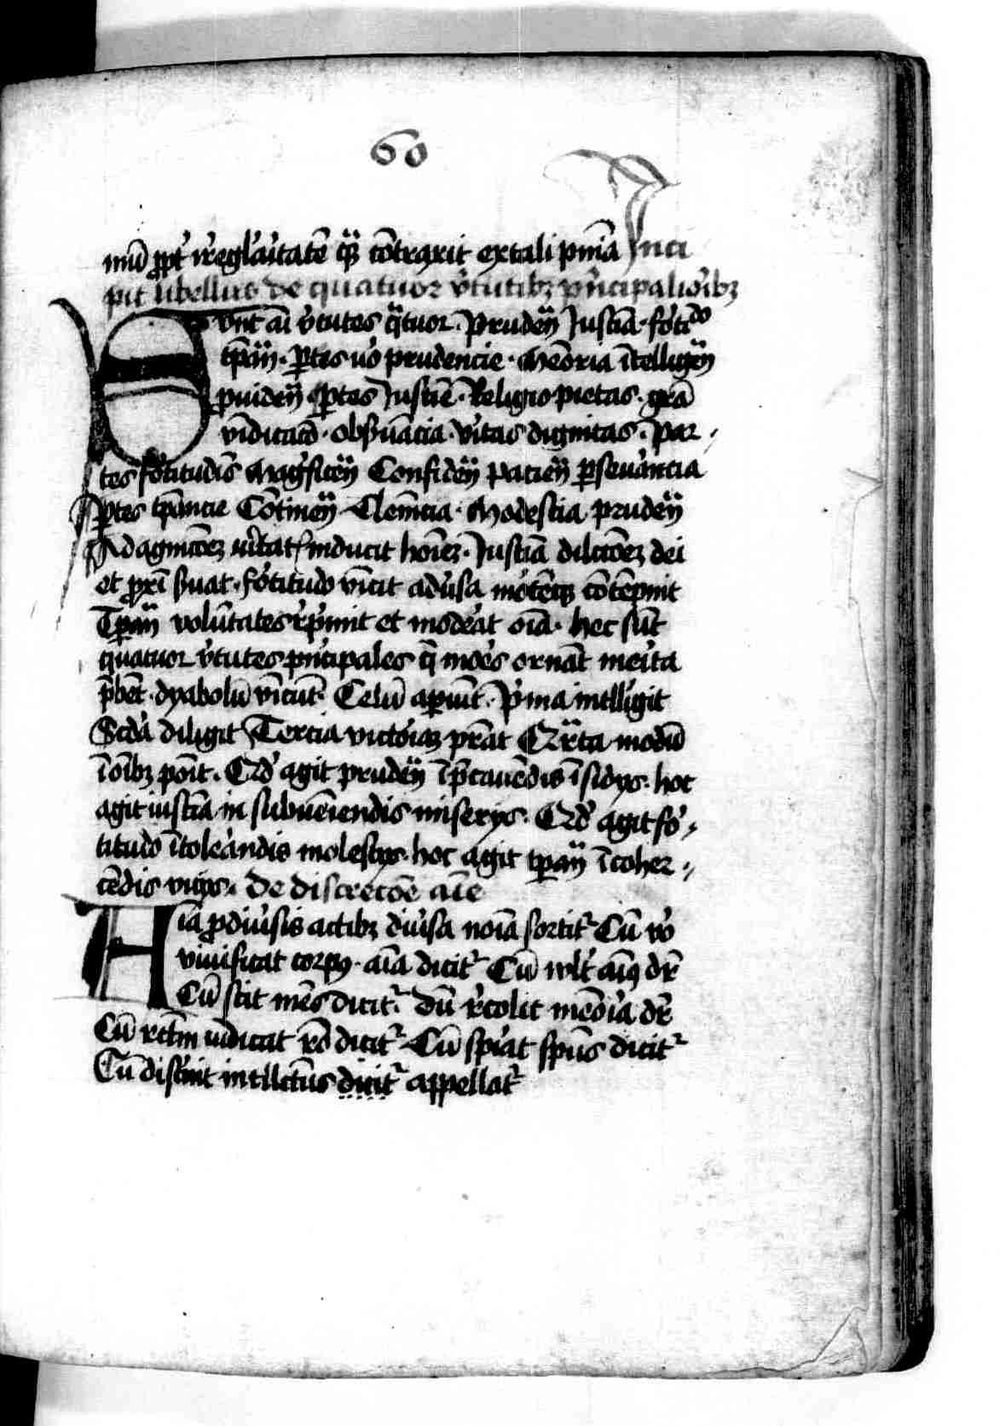 60
mũ ꝓpt̉ ir̉egl̉aitatẽ q̃ꝫ cõtraxit ex tali pñia Inci
pit libellus de quatuor v̉tutibꝫ p̉ncipaliorĩbꝫ
Sunt aũ v̉tutes q̃tuor. Prudeñ Justia. fo̓tido
tp̃añ. Ꝑtes vo̓ prudencie. Meõria ĩtelligeñ
puideñ. Ꝑtes Justiẽ. Religio pietas. grã
vĩdicacõ. obs̉uãcia. v̉itas dignitas. Par
tes fo̓titudĩs Mag̓ficeñ Confideñ pacieñ ꝑseu̓ancia
Ꝑtes tp̃ancie Cõtineñ Clem̃cia. Modestia prudeñ
Ad agnicõeꝫ u̓itat inducit hoĩeꝫ. Justiã dilcõeꝫ dei
et pxĩ s̉uat. fo̓titudo vĩcit adu̓sa mo̓tẽqꝫ cõtẽpnit
Tp̃añ volũtates r̉p̉mit et mode̓at oĩa. hec sũt
quatuor v̉tutes p̉ncipales q̃ mões ornãt me̓ita
p̃bẽt. dyabolũ vĩcũt. Celũ aꝑiũt. P̉ma intll̓igit
Scd̓a diligit Tercia victo̓iaꝫ p̃rat Q̃rta modũ
ĩ oĩbꝫ põit. Qd̓ agit prudeñ ĩ p̃cauẽdis ĩsidijs. hoc
agit iustĩa in subueniendis miserijs. Qd̓ agit fo̓
titudo ĩ tole̓andis molestijs hoc agit tp̃añ ĩ coher
cẽdis vicijs. De discrecõe aĩe
Aĩa ꝓ diu̓sis actibꝫ diu̓sa noĩa sortit̉ Cũ vo̓
viuificat corpꝰ. aĩa dicit̉ Cũ vlt̉ aĩꝰ dr̃
Cũ scit mẽs dicit̉. Dũ r̉colit meo̓ia dr̃
Cũ rctm̃ iudicat rõ dicit̉. Cũ spi̓at sp̃us dicit̉
Cũ disc̓nit intllc̃tus dicit̉ appellat̉